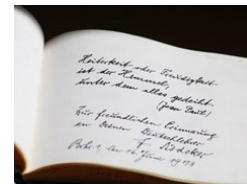 Heiterkeit oder Freudigkeit
ist der Himmel,
unter dem alles gedeiht.
(Jean Paul)
Zur freundlichen Erinnerung
an Deinen Deutschlehrer
F.
den Juni